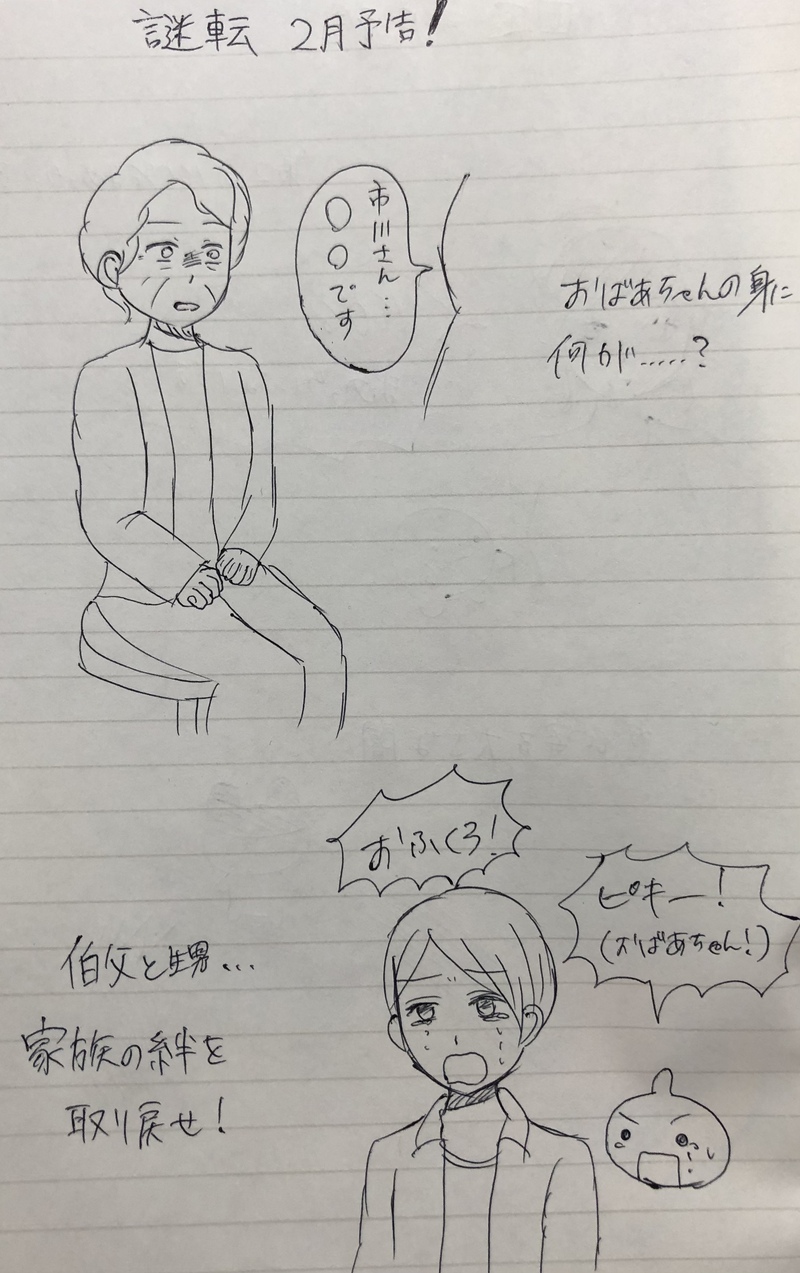 謎転 2月予告!
市川さん…
〇〇です
おばあちゃんの身に
何が……?
おふくろ!
ピキー!
(おばあちゃん!)
伯父と甥…
家族の絆を
取り戻せ!